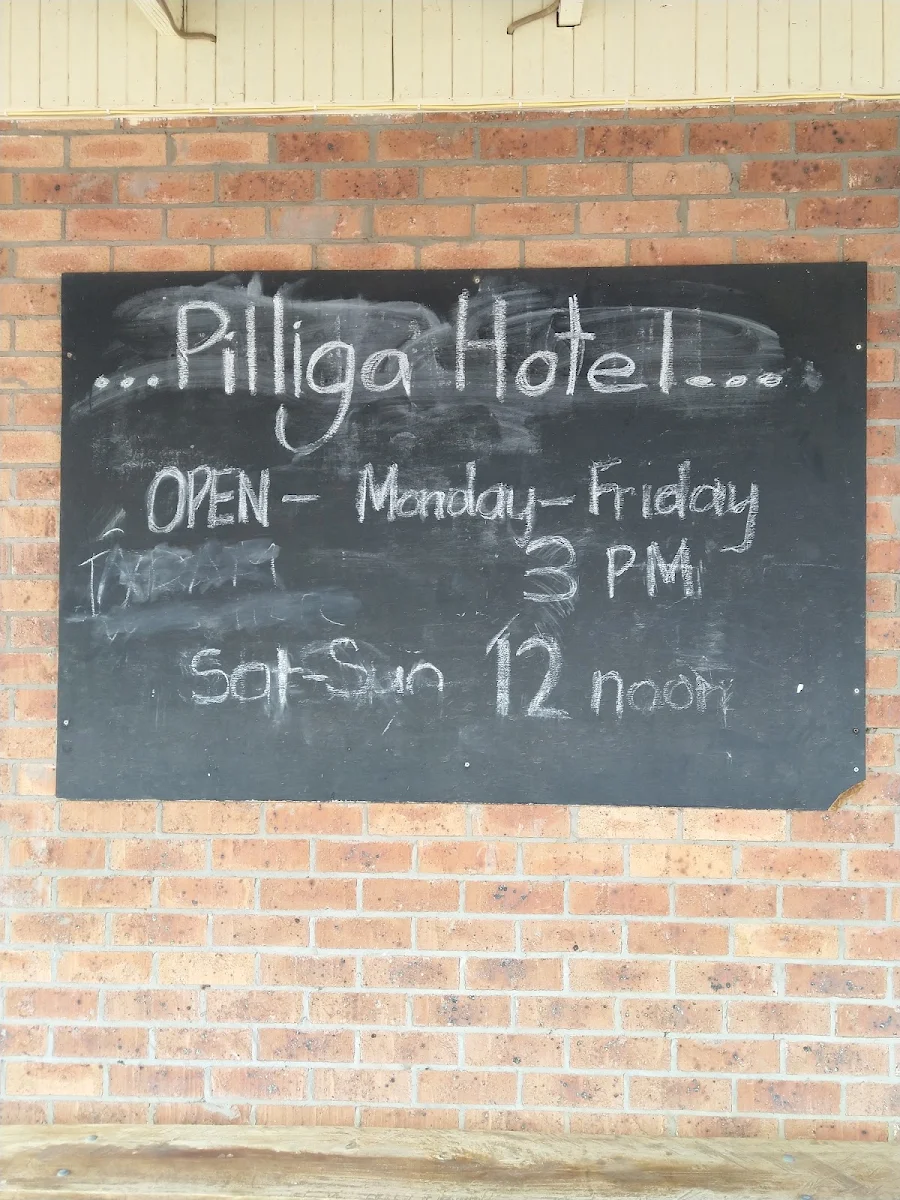 ...Pilliga Hotel...
OPEN- Monday-Friday
3 PM
Sat-Sun 12 noon